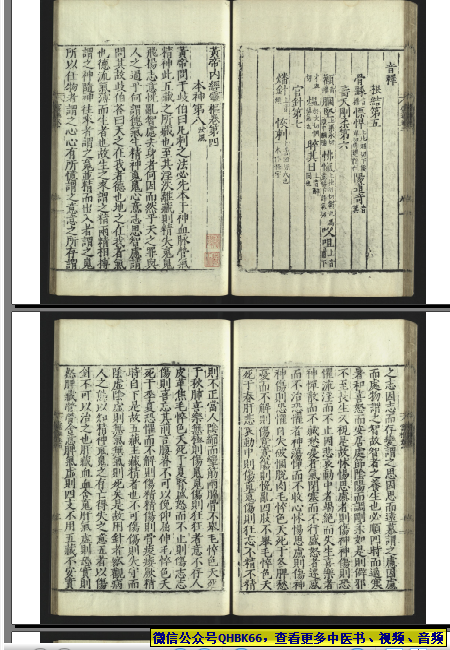 音釋
根結第五
壽夭剛柔第六
官針第七
黃帝內經靈樞卷第四
本神第八 法風
黃帝問于岐伯曰凡刺之法必先本于神血脉營氣
精神此五藏之所藏也至其淫泆離藏則精失魂魄
飛揚志意恍亂智慮去身者何因而然乎天之罪與
人之過乎何謂德氣生精神魂魄心意志思智慮請
問其故岐伯荅曰天之在我者德也地之在我者氣
也德流氣薄而生者也故生之來謂之精兩精相搏
謂之神隨神往來者謂之魂並精而出入者謂之魄
所以任物者謂之心心有所憶謂之意意之所存謂
之志因志而存變謂之思因思而遠慕謂之慮因慮
而處物謂之智故智者之養生也必順四時而適寒
暑和喜怒而安居處節陰陽而調剛柔如是則僻邪
不至長生久視是故怵惕思慮者則傷神神傷則恐
懼流淫而不止因悲哀動中者竭絕而失生喜樂者
神憚散而不藏愁憂者氣閉塞而不行盛怒者迷惑
而不治恐懼者神蕩憚而不收心怵惕思慮則傷神
神傷則恐懼自失破䐃脫肉毛悴色夭死于冬脾愁
憂而不解則傷意意傷則悗亂四肢不舉毛悴色夭
死于春肝悲哀動中則傷魂魂傷則狂忘不精不精
則不正當人陰縮而攣筋兩脇骨不舉毛悴色夭死
于秋肺喜樂無極則傷魄魄傷則狂狂者意不存人
皮革焦毛悴色夭死于夏腎盛怒而不止則傷志志
傷則喜忘其前言腰脊不可以俛仰屈伸毛悴色夭
死于季夏恐懼而不解則傷精精傷則骨痠痿厥精
時自下是故五藏主藏精者也不可傷傷則失守而
陰虛陰虛則無氣無氣則死矣是故用針者察觀病
人之態以知精神魂魄之存亡得失之意五者以傷
針不可以治之也肝藏血血舍魂肝氣虛則恐實則
怒脾藏營營舍意脾氣虛則四肢不用五藏不安實
微信公众号QHBK66，查看更多中医书、视频、音频